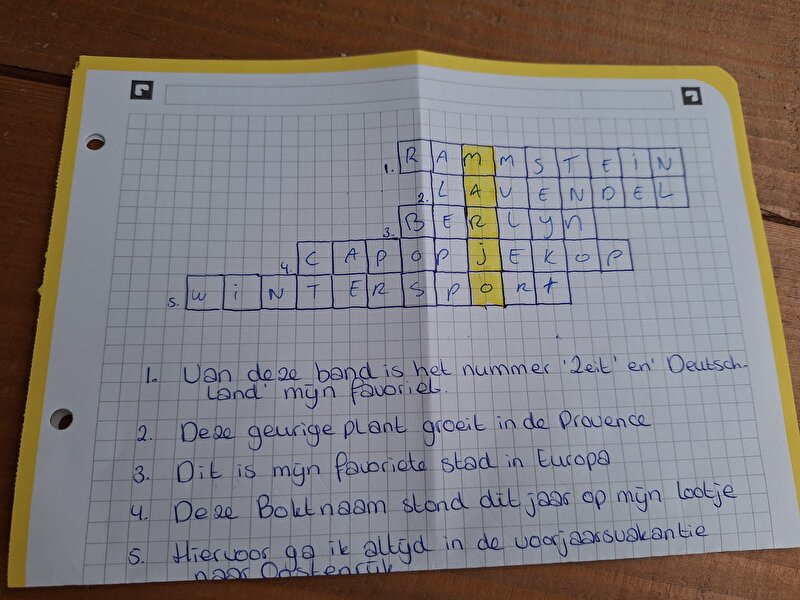 1. RAMMSTEiN
2. LAVENDEL
3. BERLYN
4. CAPOPjEKOP
5. WiNTERSPORt
1. Van deze band is het nummer 'Zeit' en 'Deutsch-
land' mijn favoriet.
2. Deze geurige plant groeit in de Provence
3. Dit is mijn favoriete stad in Europa
4. Deze Boltnaam stond dit jaar op mijn lootje
5. Hiervoor ga ik altijd in de voorjaarsvakantie
naar Oostenrijk